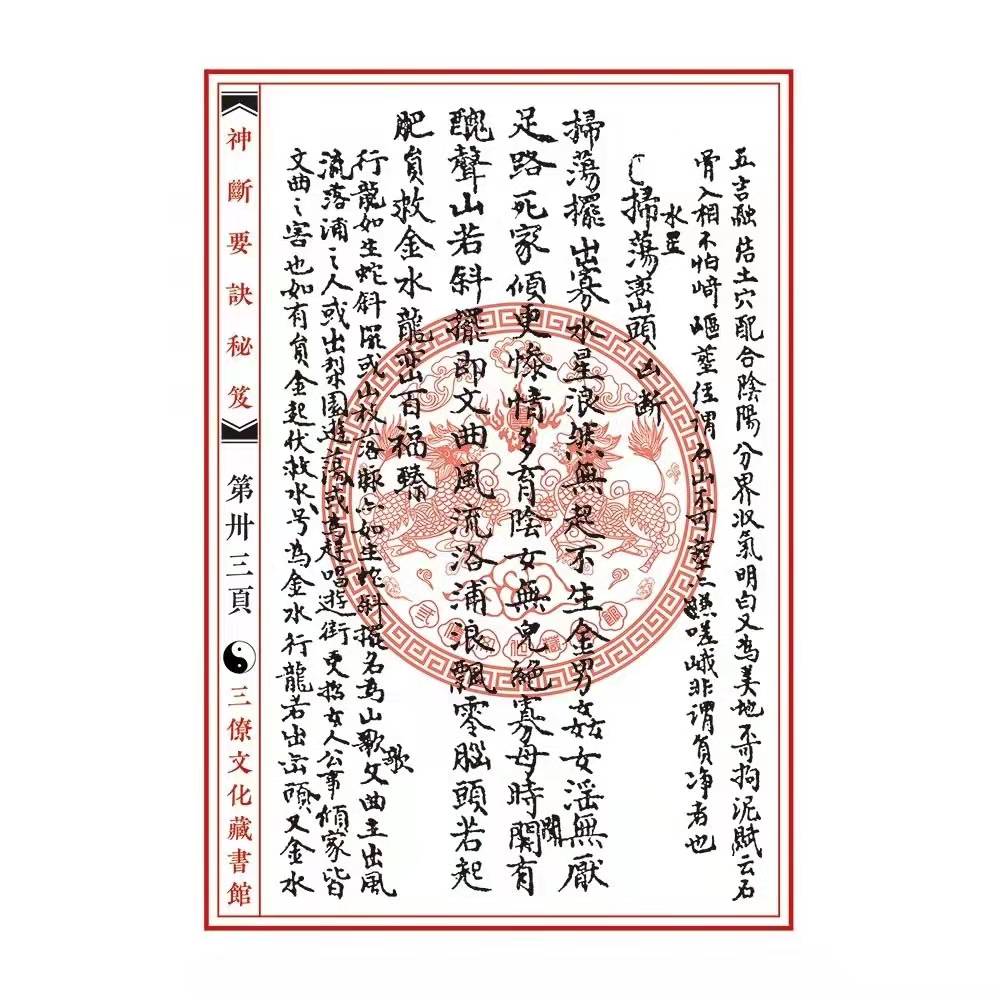 五吉融结土穴配合陰陽分界収氣明白又為美地不可拘泥賦云石
骨入相不怕崎嶇塟経謂石山不可塟亦嵯峨非謂負净者也
水星
掃荡峦頭凶断
掃荡擺出寡水星浪然無起不生金男女姦女淫無厭
足路死家傾更惨情多育陰女無兒絶寡母時開有
醜聲山若斜擺即文曲風流洛浦浪飄零腦頭若起
肥負救金水龍峦百福臻
行龍如生蛇斜摆或山枝落脉亦如生蛇斜摆名為山歌文曲主出風
歌
流落浦之人或出梨園遊荡或為趕唱遊街更招女人公事傾家皆
文曲之害也如有負金起伏救水号為金水行龍若出峦頭又金水
神斷要訣秘笈
第卅三頁
三僚文化藏書館